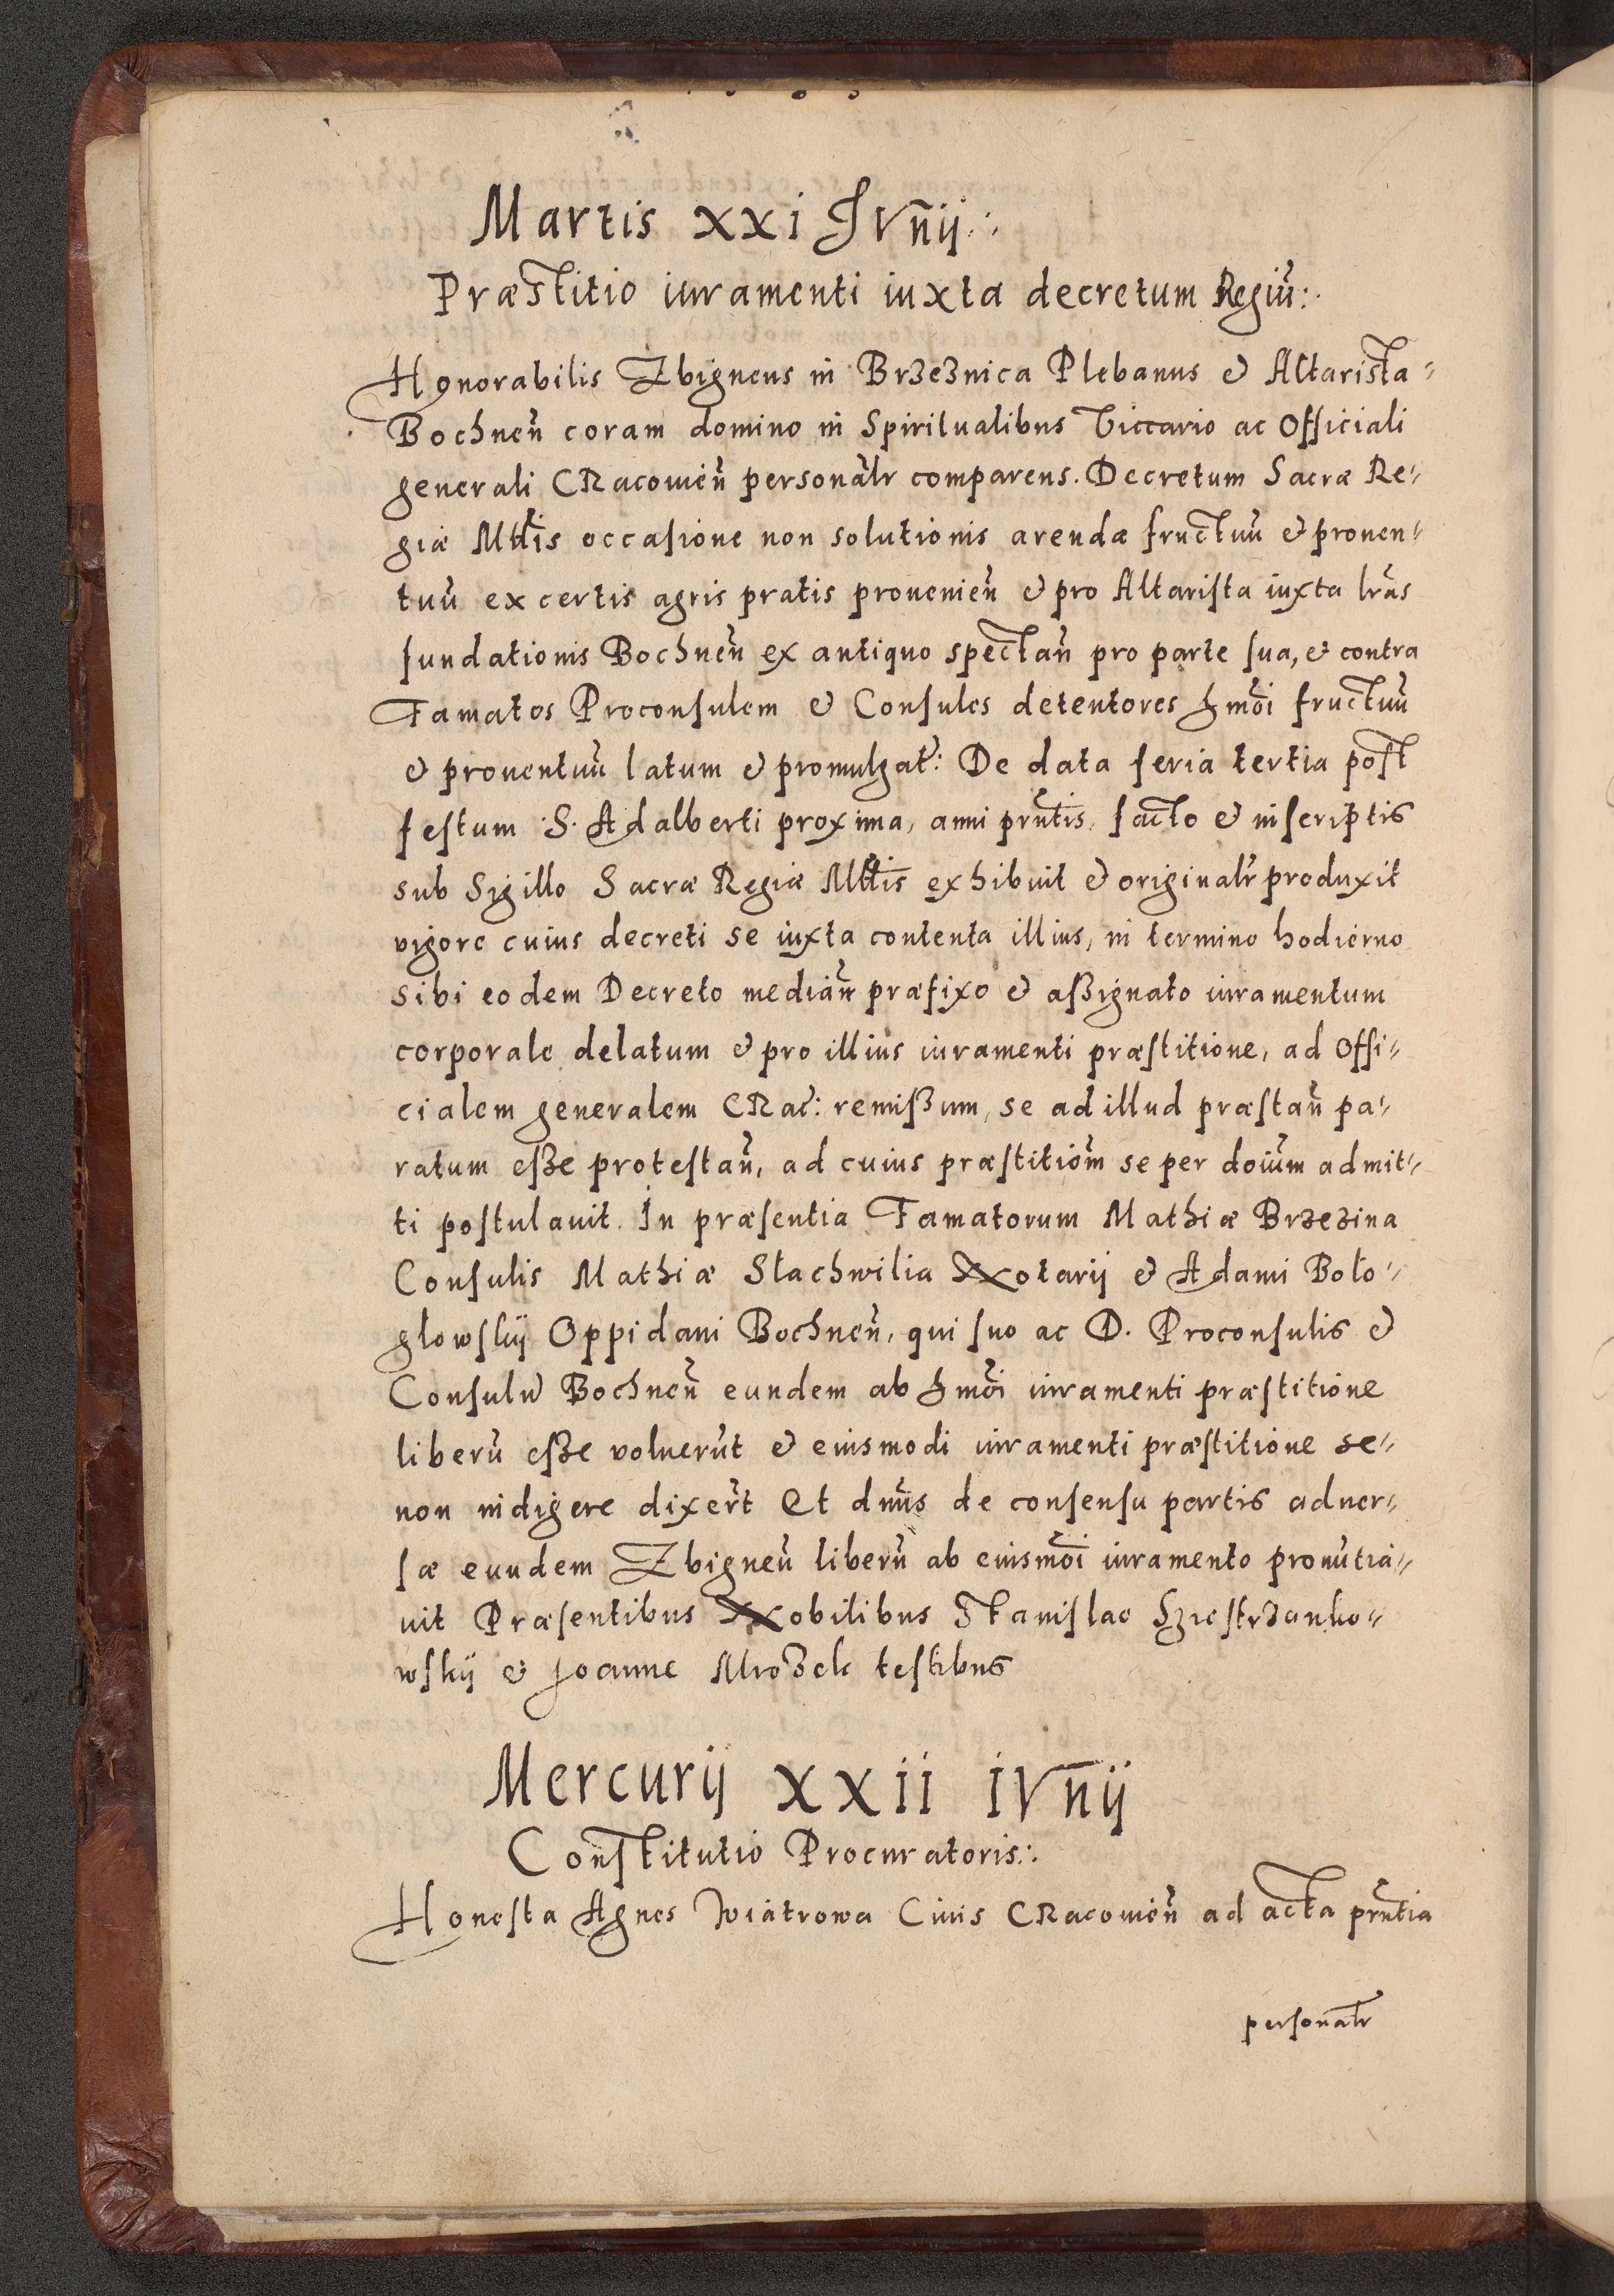 Martis xxi IVnij:
Præstitio iuramenti iuxta decretum Regiu͂:
Honorabilis Zbigneus in Brzeznica Plebanus & Altarista-
Bochnen͂ coram domino in Spiritualibus Viccario ac Officiali
generali CRacouien͂ personal͂r comparens. Decretum Sacræ Re-
giæ Mt͂tis occasione non solutionis arendæ fructuu͂ & prouen-
tuu͂ ex certis agris pratis prouenien͂ & pro Altarista iuxta lr͂as
fundationis Bochnen͂ ex antiquo spectan͂ pro parte sua, & contra
Famatos Proconsulem & Consules detentores hmo͂i fructuu͂
& prouentuu͂ latum & promulgat͂: De data feria tertia post
festum S. Adalberti proxima, anni prn͂tis, facto & in scriptis
sub Sigillo Sacræ Regiæ Mt͂tis exhibuit & original͂r produxit
vigore cuius decreti se iuxta contenta illius, in termino hodierno
sibi eodem Decreto median͂ præfixo & aßignato iuramentum
corporale delatum & pro illius iuramenti præstitione, ad Offi-
cialem generalem CRac͂: remißum, se ad illud præstan͂ pa-
ratum eße protestan͂, ad cuius præstitio͂m se per doiu͂m admit-
ti postulauit. In præsentia Famatorum Mathiæ Brzezina
Consulis Mathiæ Stachwilia Notarij & Adami Boło-
głowskij Oppidani Bochnen͂, qui suo ac D. Proconsulis &
Consulu͂ Bochnen͂ eundem ab hmo͂i iuramenti præstitione
liberu͂ eße volueru͂t & eiusmodi iuramenti præstitione se-
non indigere dixer͂t Et dnu͂s de consensu partis aduer-
sæ eundem Zbigneu͂ liberu͂ ab eiusmo͂i iuramento pronu͂tia-
uit Præsentibus Nobilibus Stanislao Sziestrzanko-
wskij & Joanne Mrozek testibus
Mercurij xxii iVnij
Constitutio Procuratoris:
Honesta Agnes Wiatrowa Ciuis CRacouien͂ ad acta prn͂tia
personal͂r